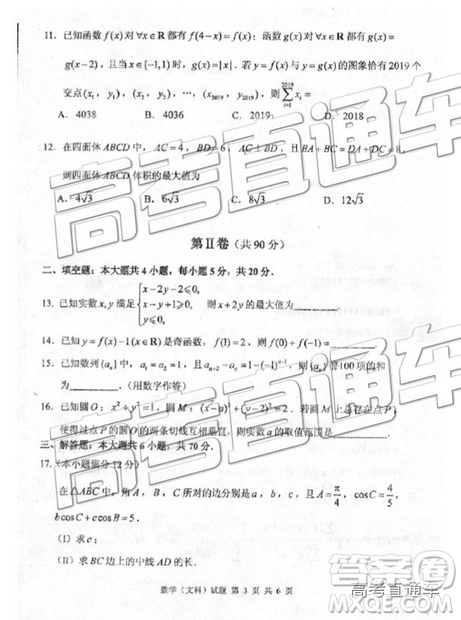 11. 已知函数 f(x) 对 ∀x∈R 都有 f(4-x)=f(x); 函数 g(x) 对 ∀x∈R 都有 g(x)=
g(x-2), 且当 x∈[-1,1) 时, g(x)=|x|. 若 y=f(x) 与 y=g(x) 的图象恰有 2019 个
交点 (x₁, y₁), (x₂, y₂), …, (x₂₀₁₉, y₂₀₁₉), 则 ∑_{i=1}^{2019} xᵢ =
A. 4038 B. 4036 C. 2019 D. 2018
12. 在四面体 ABCD 中, AC=4, BD=6, AC⊥BD, 且 BA+BC=DA+DC=8,
则四面体 ABCD 体积的最大值为
A. 4√3 B. 6√3 C. 8√3 D. 12√3
第Ⅱ卷 (共 90 分)
二、填空题: 本大题共 4 小题, 每小题 5 分, 共 20 分.
13. 已知实数 x, y 满足 { x-2y-2≤0, x-y+1≥0, y≤0, 则 x+2y 的最大值为
14. 已知 y=f(x)-1(x∈R) 是奇函数, f(1)=2, 则 f(0)+f(-1)=
15. 已知数列{aₙ}中, a₁=a₂=1, 且 aₙ₊₂-aₙ=1-(-1)ⁿ⁻¹, 则{aₙ}前100项的和
为 . (用数字作答)
16. 已知圆 O: x²+y²=1, 圆 M: (x-a)²+(y-2)²=2. 若圆 M 上存在点 P,
使得过点 P 的圆 O 的两条切线互相垂直, 则实数 a 的取值范围是 .
三、解答题: 本大题共 6 小题, 共 70 分.
17. (本小题满分 12 分)
在△ABC 中, 角 A, B, C 所对的边分别是 a, b, c, 且 A=π/4, cosC=4/5,
bcosC+ccosB=5.
(Ⅰ) 求 c;
(Ⅱ) 求 BC 边上的中线 AD 的长.
数学 (文科) 试题 第 3 页 共 6 页
高考直通车
高考直通车
高考直通车
答案圈
高考直通车